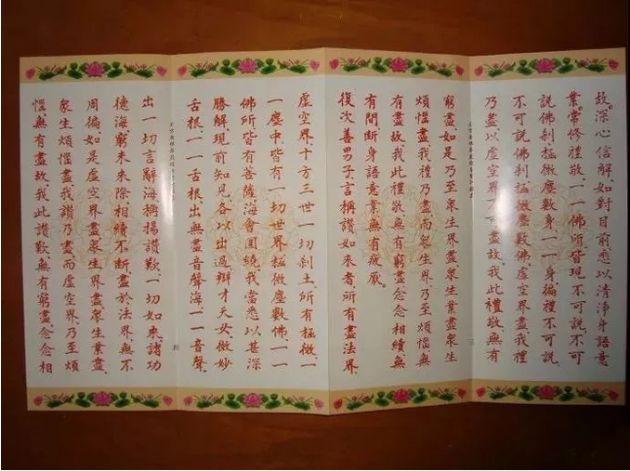 故。深心信解。如對目前。悉以清淨身語意
業。常修禮敬。一一佛所。皆現不可說不可
說佛剎極微塵數身。一一身。徧禮不可說
不可說佛剎極微塵數佛。虛空界盡。我禮
乃盡。以虛空界不可盡故。我此禮敬。無有
窮盡。如是乃至眾生界盡。眾生業盡。眾生
煩惱盡。我禮乃盡。而眾生界。乃至煩惱。無
有盡故。我此禮敬。無有窮盡。念念相續。無
有間斷。身語意業。無有疲厭。
復次善男子。言稱讚如來者。所有盡法界。
虛空界。十方三世一切剎土。所有極微一
一塵中。皆有一切世界極微塵數佛。一一
佛所。皆有菩薩海會圍繞。我當悉以甚深
勝解。現前知見。各以出過辯才天女微妙
舌根。一一舌根。出無盡音聲海。一一音聲。
出一切言辭海。稱揚讚歎。一切如來。諸功
德海。窮未來際。相續不斷。盡於法界。無不
周徧。如是虛空界盡。眾生界盡。眾生業盡。
眾生煩惱盡。我讚乃盡。而虛空界。乃至煩
惱。無有盡故。我此讚歎。無有窮盡。念念相